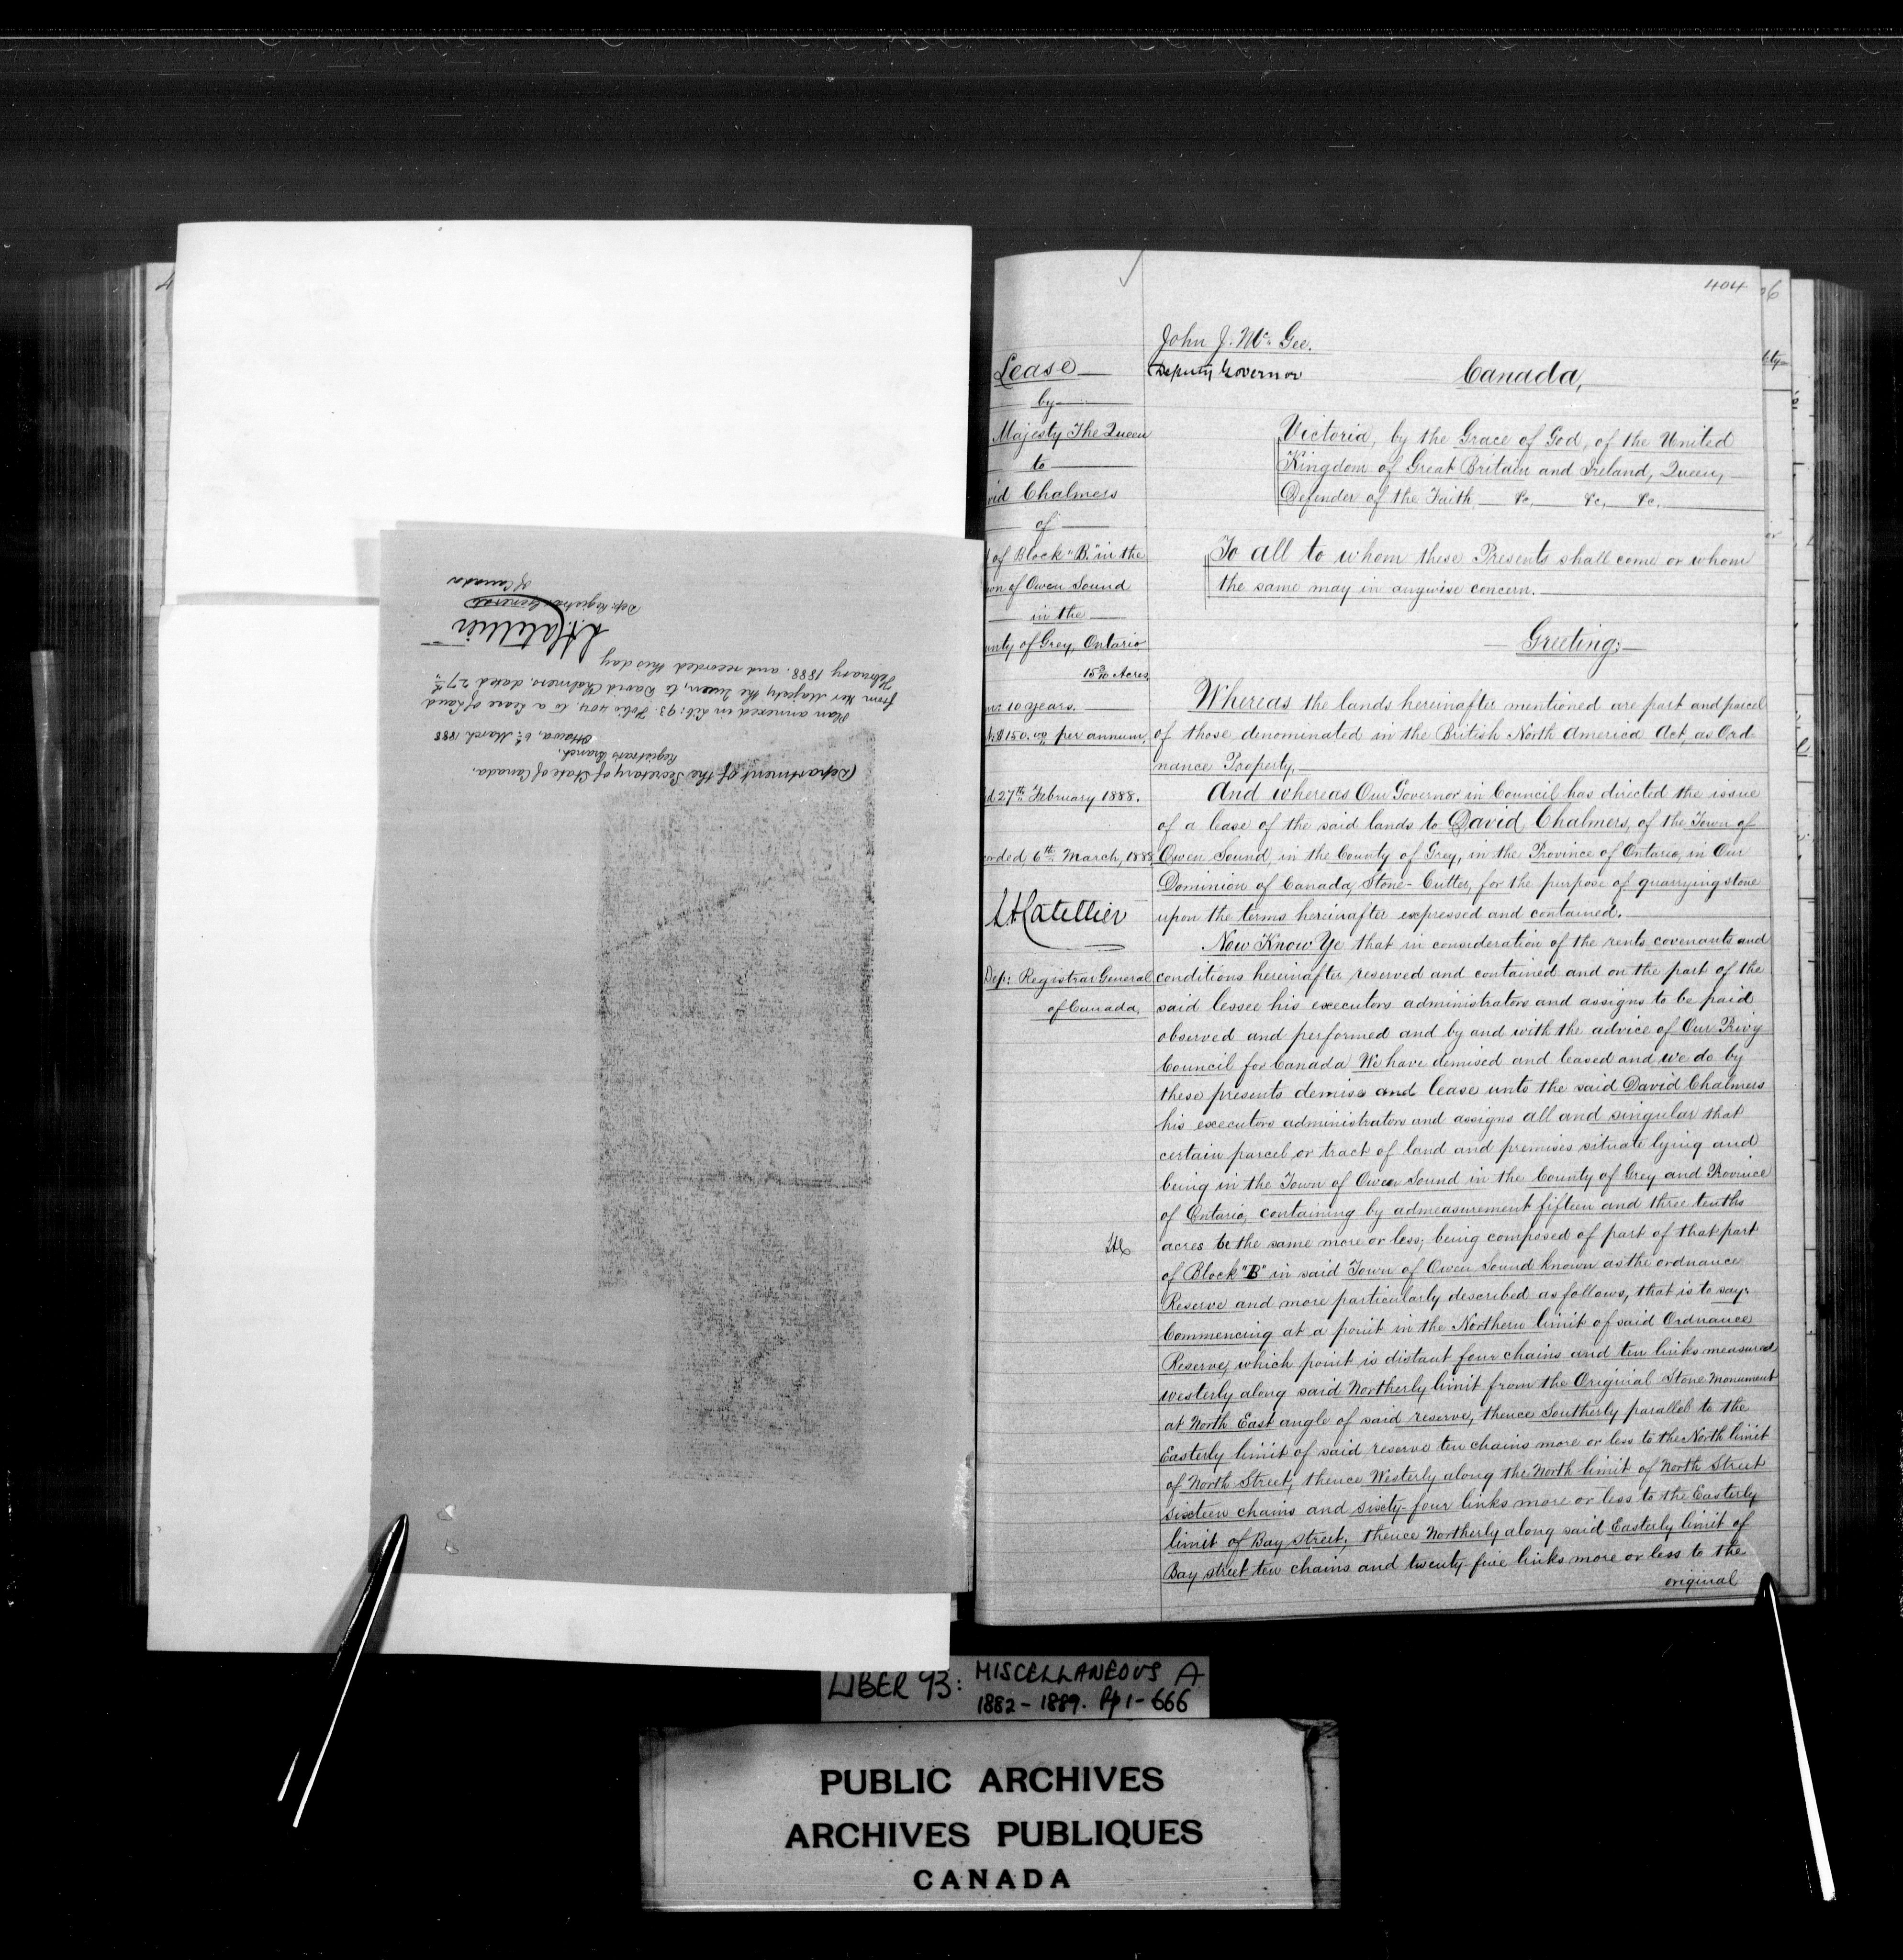 Department of the Secretary of State of Canada.
Registrar's Branch,
Ottawa, 6th March 1888
Plan annexed in Lib: 93. Folio 404. to a Lease of Land
from Her Majesty the Queen, to David Chalmers. dated 27th
February 1888. and recorded this day
L A Catellier
Dep: Registrar General
of Canada
404
06
Lease
by
Majesty The Queen
to
vid Chalmers
of
t of Block "B" in the
wn of Owen Sound
in the
unty of Grey, Ontario
15 3/10 Acres
10 years.
$150.00 per annum.
d 27th February 1888.
orded 6th March, 1888.
L A Catellier
Dep: Registrar General
of Canada,
John J. Mc Gee.
Deputy Governor
Canada,
Victoria, by the Grace of God, of the United
Kingdom of Great Britain and Ireland, Queen,
Defender of the Faith, &c, &c, &c.
To all to whom these Presents shall come or whom
the same may in anywise concern.
Greeting:
Whereas the lands hereinafter mentioned are part and parcel
of those denominated in the British North America Act, as Ord-
nance Property.
And whereas Our Governor in Council has directed the issue
of a lease of the said lands to David Chalmers, of the Town of
Owen Sound, in the County of Grey, in the Province of Ontario, in Our
Dominion of Canada, Stone-Cutter, for the purpose of quarrying stone
upon the terms hereinafter expressed and contained.
Now Know Ye that in consideration of the rents covenants and
conditions hereinafter reserved and contained and on the part of the
said lessee his executors administrators and assigns to be paid
observed and performed and by and with the advice of Our Privy
Council for Canada We have demised and leased and we do by
these presents demise and lease unto the said David Chalmers
his executors administrators and assigns all and singular that
certain parcel or tract of land and premises situate lying and
being in the Town of Owen Sound in the County of Grey and Province
of Ontario, containing by admeasurement fifteen and three tenths
acres be the same more or less; being composed of part of that part
of Block "B" in said Town of Owen Sound known as the ordnance
Reserve and more particularly described as follows, that is to say:
Commencing at a point in the Northern limit of said Ordnance
Reserve, which point is distant four chains and ten links measured
westerly along said Northerly limit from the Original Stone Monument
at North East angle of said reserve, thence Southerly parallel to the
Easterly limit of said reserve ten chains more or less to the North limit
of North Street, thence Westerly along the North limit of North Street
sixteen chains and sixty-four links more or less to the Easterly
limit of Bay Street; thence Northerly along said Easterly limit of
Bay street ten chains and twenty-five links more or less to the
original
LIBER 93: MISCELLANEOUS A
1882-1889. Pp 1-666
PUBLIC ARCHIVES
ARCHIVES PUBLIQUES
CANADA